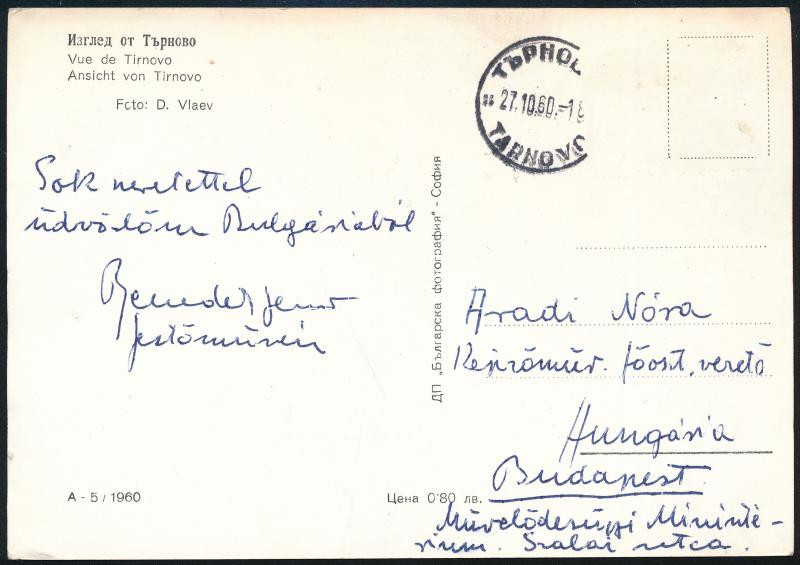 Изглед от Търново
Vue de Tirnovo
Ansicht von Tirnovo
Foto: D. Vlaev
ТЪРНО
27.10.60.-18
TARNOVO
Sok szeretettel
üdvözlöm Bulgáriából
Benedek Jenő
festőművész
ДП „Българска фотография" - София
Aradi Nóra
Képzőműv. főoszt. vezető
Hungária
Budapest
Művelődésügyi Miniszté-
rium. Szalai utca.
А - 5 / 1960
Цена 0'80 лв.